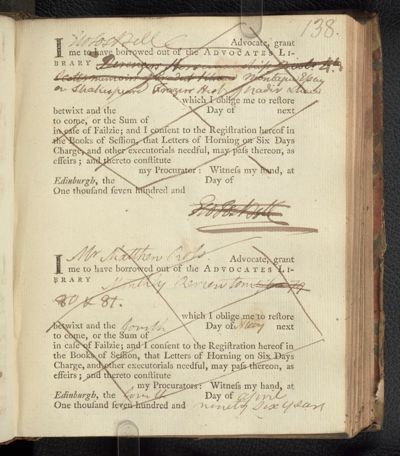 138.
I Robt Bell Advocate, grant
me to have borrowed out of the ADVOCATES LI-
BRARY
Montagu Essay
on Shakespeare Frazers Hist of Nadir
which I oblige me to reſtore
betwixt and the Day of next
to come, or the Sum of
in caſe of Failzie; and I conſent to the Regiſtration hereof in
the Books of Seſſion, that Letters of Horning on Six Days
Charge, and other executorials needful, may paſs thereon, as
effeirs; and thereto conſtitute
my Procurator: Witneſs my hand, at
Edinburgh, the Day of
One thouſand ſeven hundred and
Robt Bell
I Mr Matthew Roſs. Advocate, grant
me to have borrowed out of the ADVOCATES LI-
BRARY Monthly Review tom
80 & 81.
which I oblige me to reſtore
betwixt and the fourth Day of May next
to come, or the Sum of
in caſe of Failzie; and I conſent to the Regiſtration hereof in
the Books of Seſſion, that Letters of Horning on Six Days
Charge, and other executorials needful, may paſs thereon, as
effeirs; and thereto conſtitute
my Procurators: Witneſs my hand, at
Edinburgh, the fourth Day of April
One thouſand ſeven hundred and ninety Six years